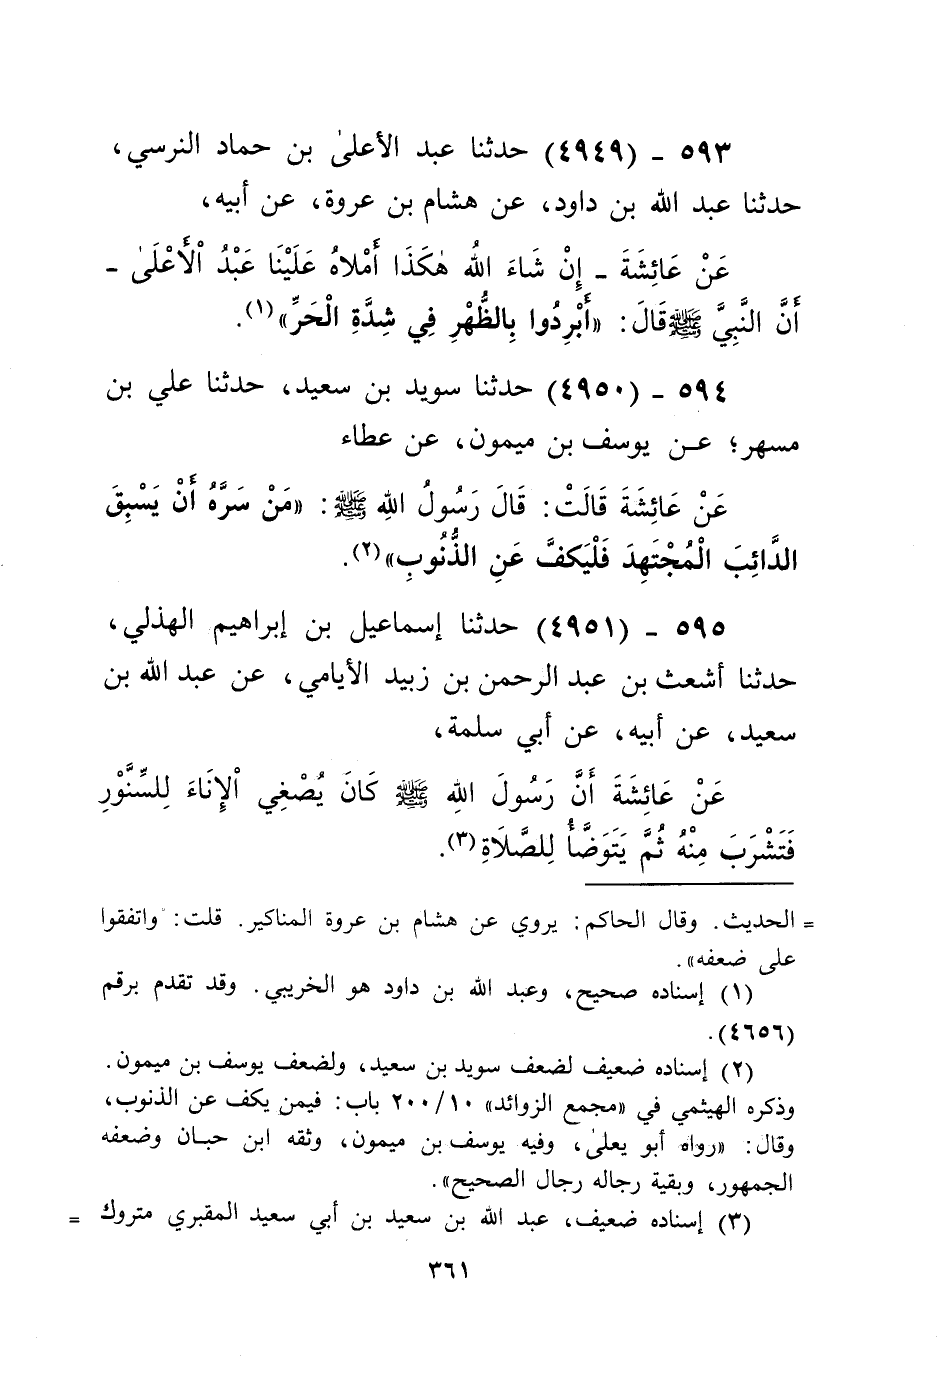 ٥٩٣ ـ (٤٩٤٩) حدثنا عبد الأعلىٰ بن حماد النرسي،
حدثنا عبد الله بن داود، عن هشام بن عروة، عن أبيه،
عَنْ عَائِشَةَ ـ إِنْ شَاءَ اللهُ هٰكَذَا أَمْلاهُ عَلَيْنَا عَبْدُ الْأَعْلَىٰ ـ
أَنَّ النَّبِيَّ ﷺ قَالَ: «أَبْرِدُوا بِالظُّهْرِ فِي شِدَّةِ الْحَرِّ»(١).
٥٩٤ ـ (٤٩٥٠) حدثنا سويد بن سعيد، حدثنا علي بن
مسهر؛ عن يوسف بن ميمون، عن عطاء
عَنْ عَائِشَةَ قَالَتْ: قَالَ رَسُولُ اللهِ ﷺ: «مَنْ سَرَّهُ أَنْ يَسْبِقَ
الدَّائِبَ الْمُجْتَهِدَ فَلْيَكفَّ عَنِ الذُّنُوبِ»(٢).
٥٩٥ ـ (٤٩٥١) حدثنا إسماعيل بن إبراهيم الهذلي،
حدثنا أشعث بن عبد الرحمن بن زبيد الأيامي، عن عبد الله بن
سعيد، عن أبيه، عن أبي سلمة،
عَنْ عَائِشَةَ أَنَّ رَسُولَ اللهِ ﷺ كَانَ يُصْغِي الْإِنَاءَ لِلسِّنَّوْرِ
فَتَشْرَبَ مِنْهُ ثُمَّ يَتَوَضَّأُ لِلصَّلَاةِ(٣).
= الحديث. وقال الحاكم: يروي عن هشام بن عروة المناكير. قلت: واتفقوا
على ضعفه».
(١) إسناده صحيح، وعبد الله بن داود هو الخريبي. وقد تقدم برقم
(٤٦٥٦).
(٢) إسناده ضعيف لضعف سويد بن سعيد، ولضعف يوسف بن ميمون.
وذكره الهيثمي في «مجمع الزوائد» ٢٠٠/١٠ باب: فيمن يكف عن الذنوب،
وقال: «رواه أبو يعلىٰ، وفيه يوسف بن ميمون، وثقه ابن حبان وضعفه
الجمهور، وبقية رجاله رجال الصحيح».
(٣) إسناده ضعيف، عبد الله بن سعيد بن أبي سعيد المقبري متروك =
٣٦١